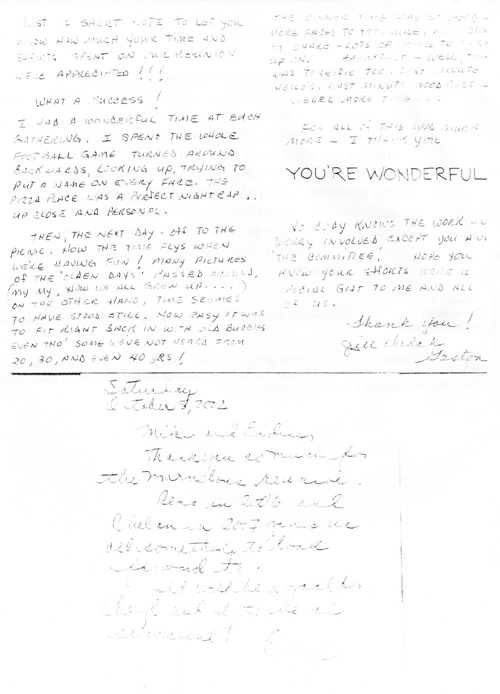 JUST A SHORT NOTE TO LET YOU
KNOW HOW MUCH YOUR TIME AND
EFFORTS SPENT ON OUR REUNION
WERE APPRECIATED!!!
WHAT A SUCCESS!
I HAD A WONDERFUL TIME AT EACH
GATHERING. I SPENT THE WHOLE
FOOTBALL GAME TURNED AROUND
BACKWARDS, LOOKING UP, TRYING TO
PUT A NAME ON EVERY FACE. THE
PIZZA PLACE WAS A PERFECT NIGHTCAP...
UP CLOSE AND PERSONAL.
THEN, THE NEXT DAY - OFF TO THE
PICNIC. HOW THE TIME FLYS WHEN
WE'RE HAVING FUN! MANY PICTURES
OF THE "OLDEN DAYS" PASSED AROUND.
(MY MY, HOW WE ALL GREW UP....)
ON THE OTHER HAND, TIME SEEMED
TO HAVE STOOD STILL. HOW EASY IT WAS
TO FIT RIGHT BACK IN WITH OLD BUDDIES
EVEN THO' SOME WE'VE NOT HEARD FROM
20, 30, AND EVEN 40 YRS!
THE DINNER TIME WAS SO GOOD -
MORE FACES TO TREASURE,
TO SHARE - LOTS OF
UP ON. BREAKFAST - WELL,
WAS TERRIFIC TOO. LAST MINUTE
HELLO'S, LAST MINUTE GOODBYES -
MORE TIME...
FOR ALL OF THIS AND MUCH
MORE - I THANK YOU
YOU'RE WONDERFUL
NO BODY KNOWS THE WORK AND
WORRY INVOLVED EXCEPT YOU AND
THE COMMITTEE, HOPE YOU
KNOW YOUR EFFORTS WERE A
SPECIAL GIFT TO ME AND ALL
OF US.
Thank you!
Jill
Gaston
Saturday
October 5, 2002
Mike and Eddie,
Thank you so much for
the marvelous reunion.
Reno in 2006 and
Chelan in 2007 gives us
all something to look
forward to.
it will be a goal for
Cheryl and I to be at